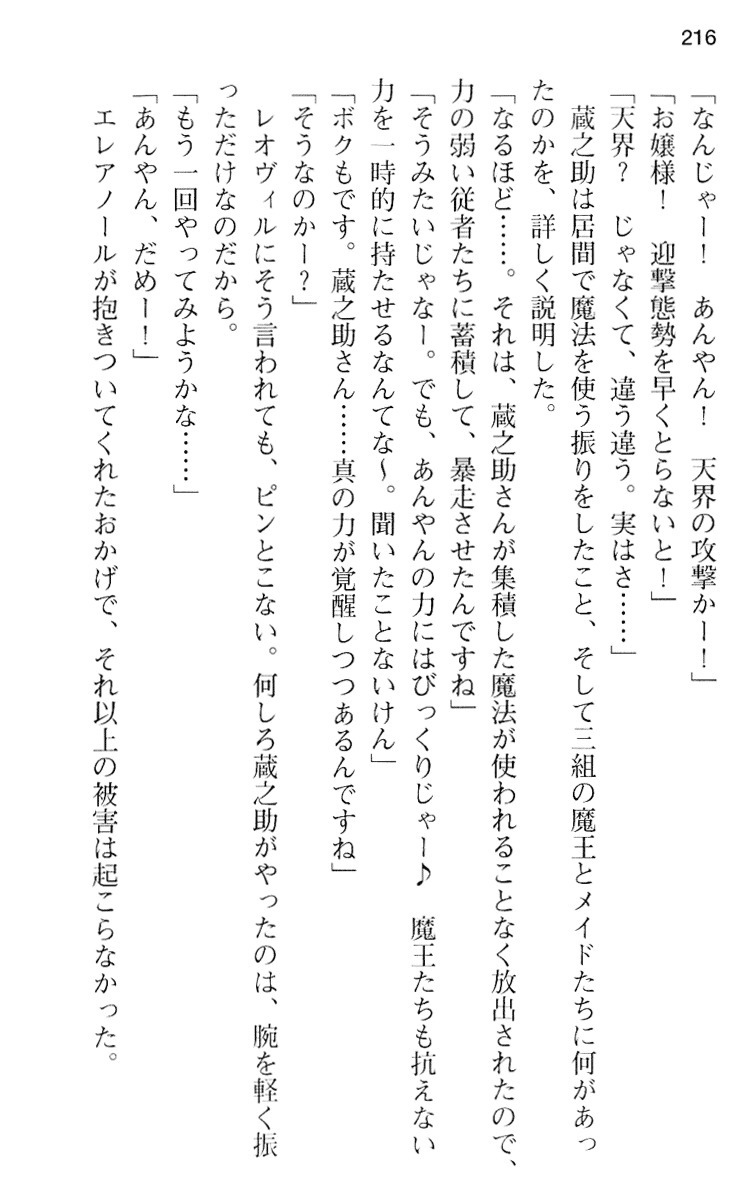 216
「なんじゃー！　あんやん！　天界の攻撃かー！」
「お嬢様！　迎撃態勢を早くとらないと！」
「天界？　じゃなくて、違う違う。実はさ……」
　蔵之助は居間で魔法を使う振りをしたこと、そして三組の魔王とメイドたちに何があっ
たのかを、詳しく説明した。
「なるほど……。それは、蔵之助さんが集積した魔法が使われることなく放出されたので、
力の弱い従者たちに蓄積して、暴走させたんですね」
「そうみたいじゃなー。でも、あんやんの力にはびっくりじゃー♪　魔王たちも抗えない
力を一時的に持たせるなんてな～。聞いたことないけん」
「ボクもです。蔵之助さん……真の力が覚醒しつつあるんですね」
「そうなのかー？」
　レオヴィルにそう言われても、ピンとこない。何しろ蔵之助がやったのは、腕を軽く振
っただけなのだから。
「もう一回やってみようかな……」
「あんやん、だめー！」
　エレアノールが抱きついてくれたおかげで、それ以上の被害は起こらなかった。